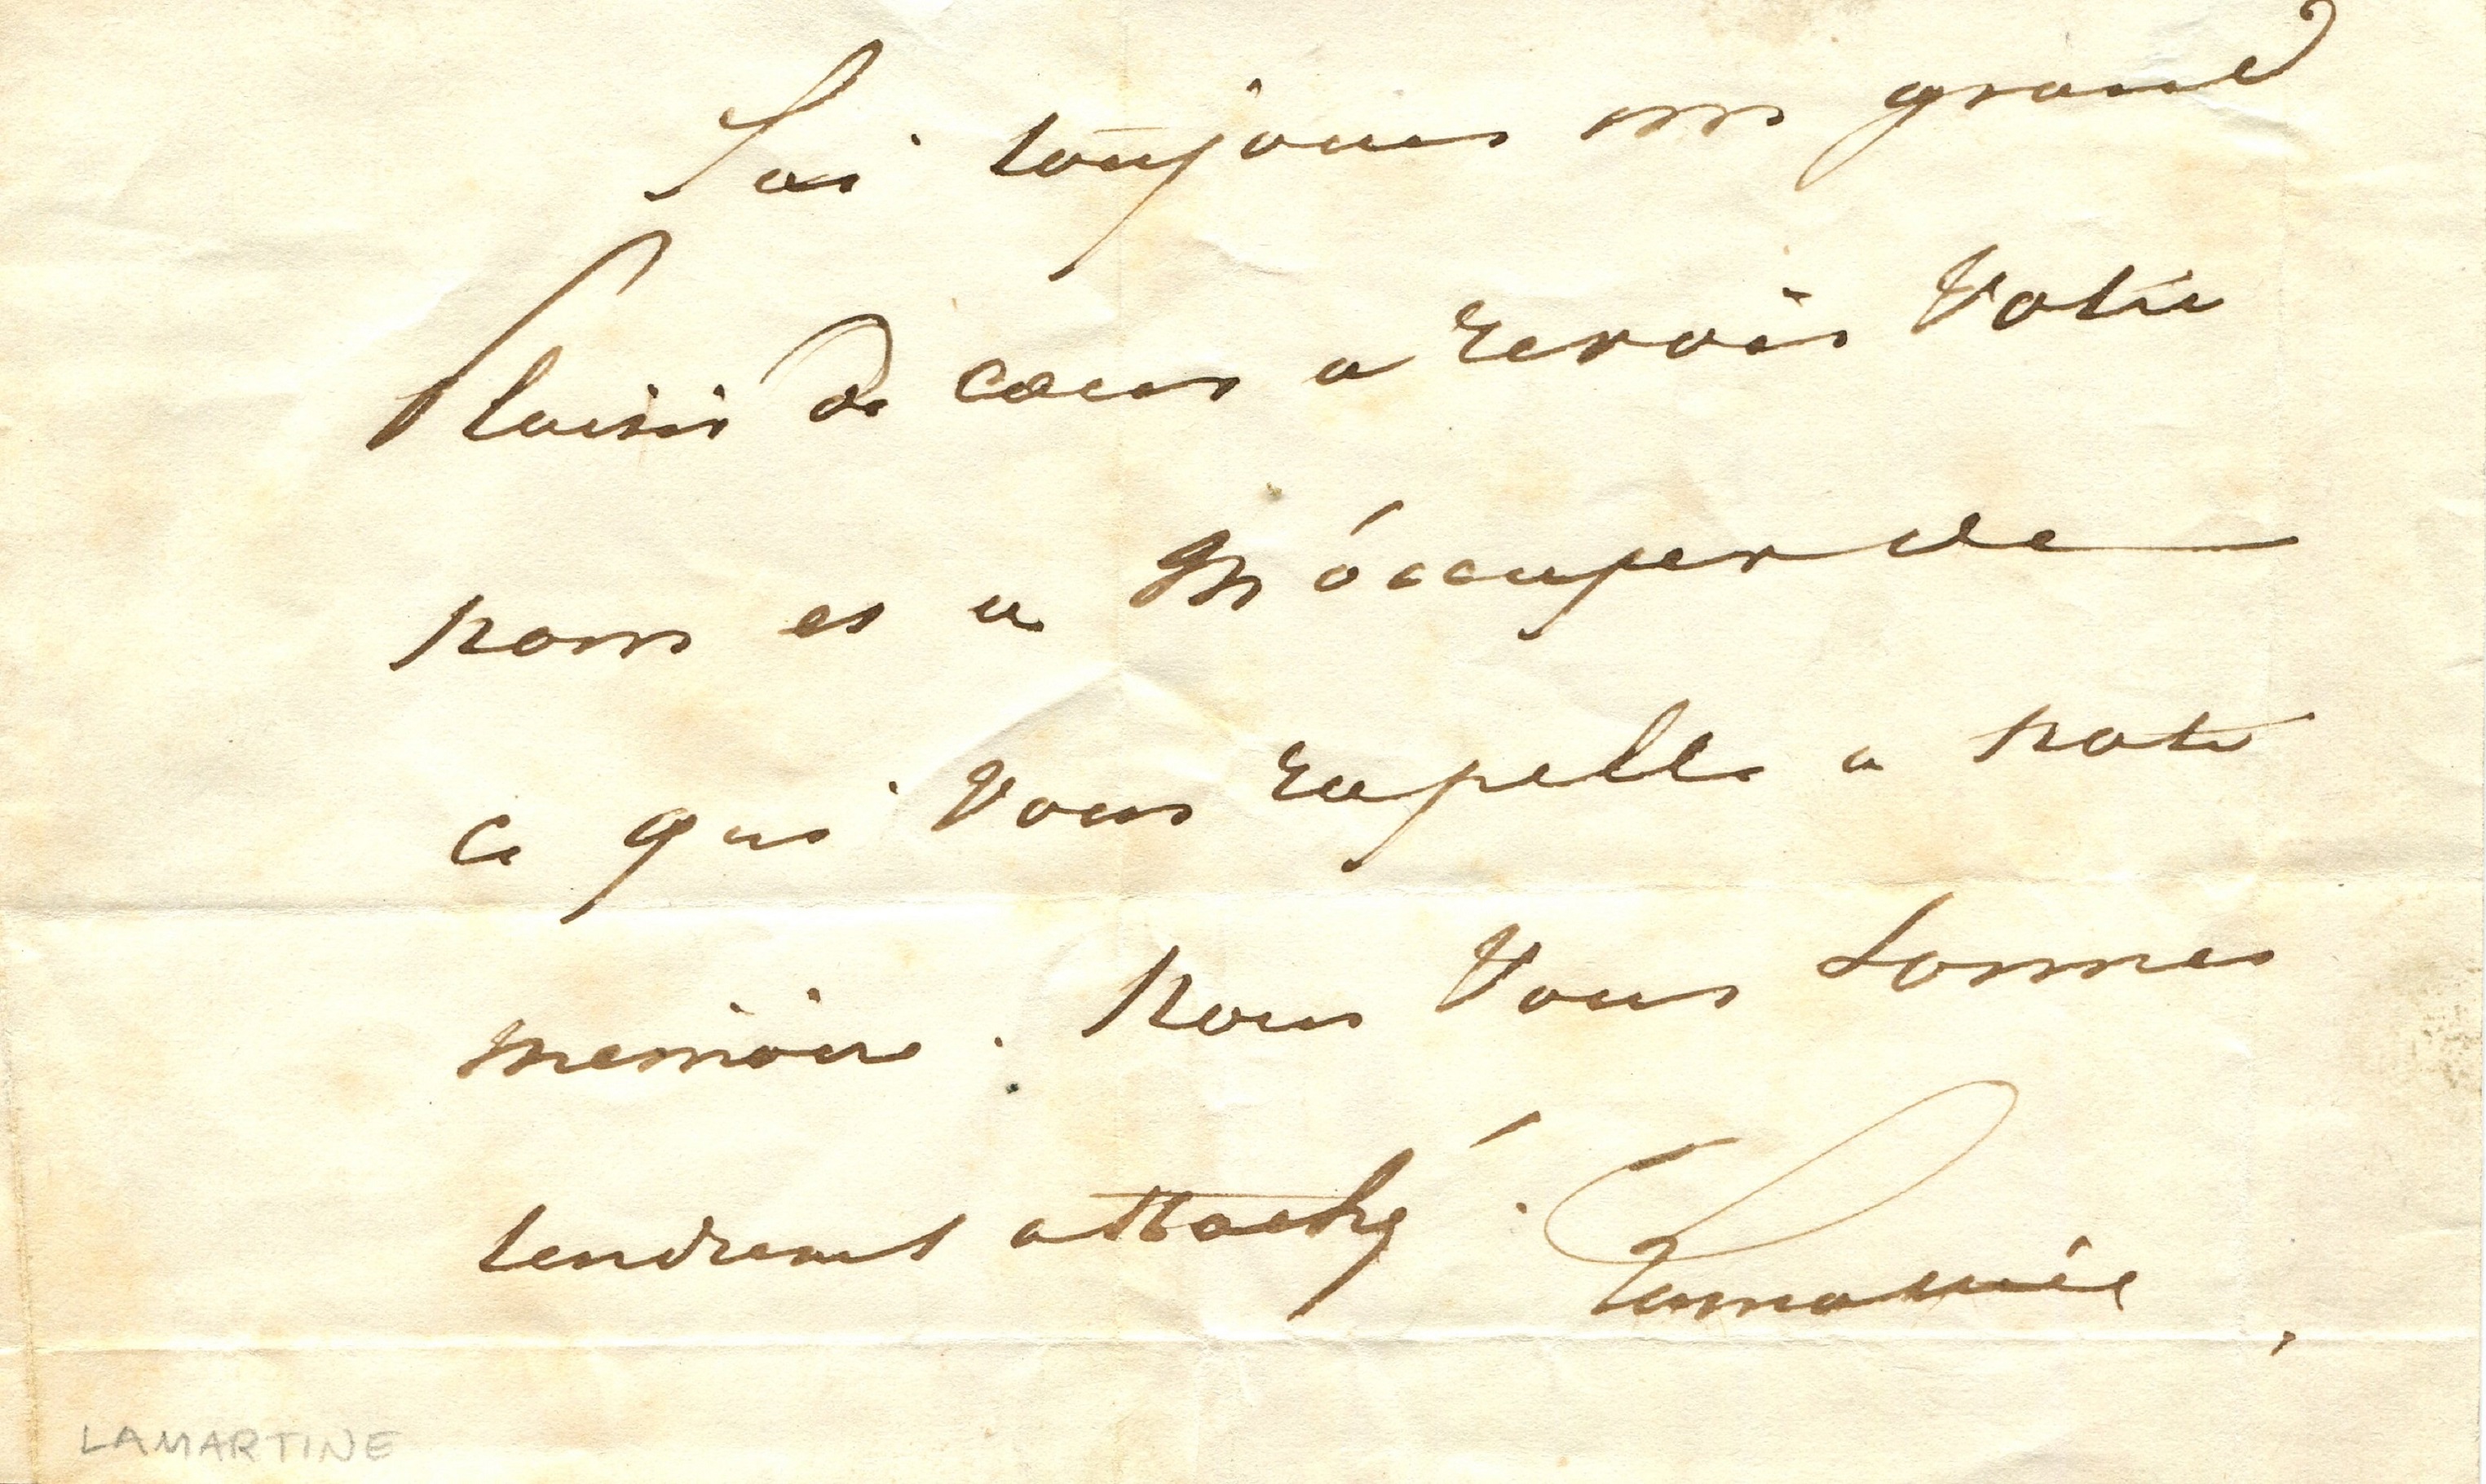 J'ai toujours un grand
Plaisir de coeur a revoir Votre
nom et a M'óccuper de
ce qui Vous rapelle a notre
memoire. Nous Vous sommes
tendrement attaché. Lamartine
LAMARTINE